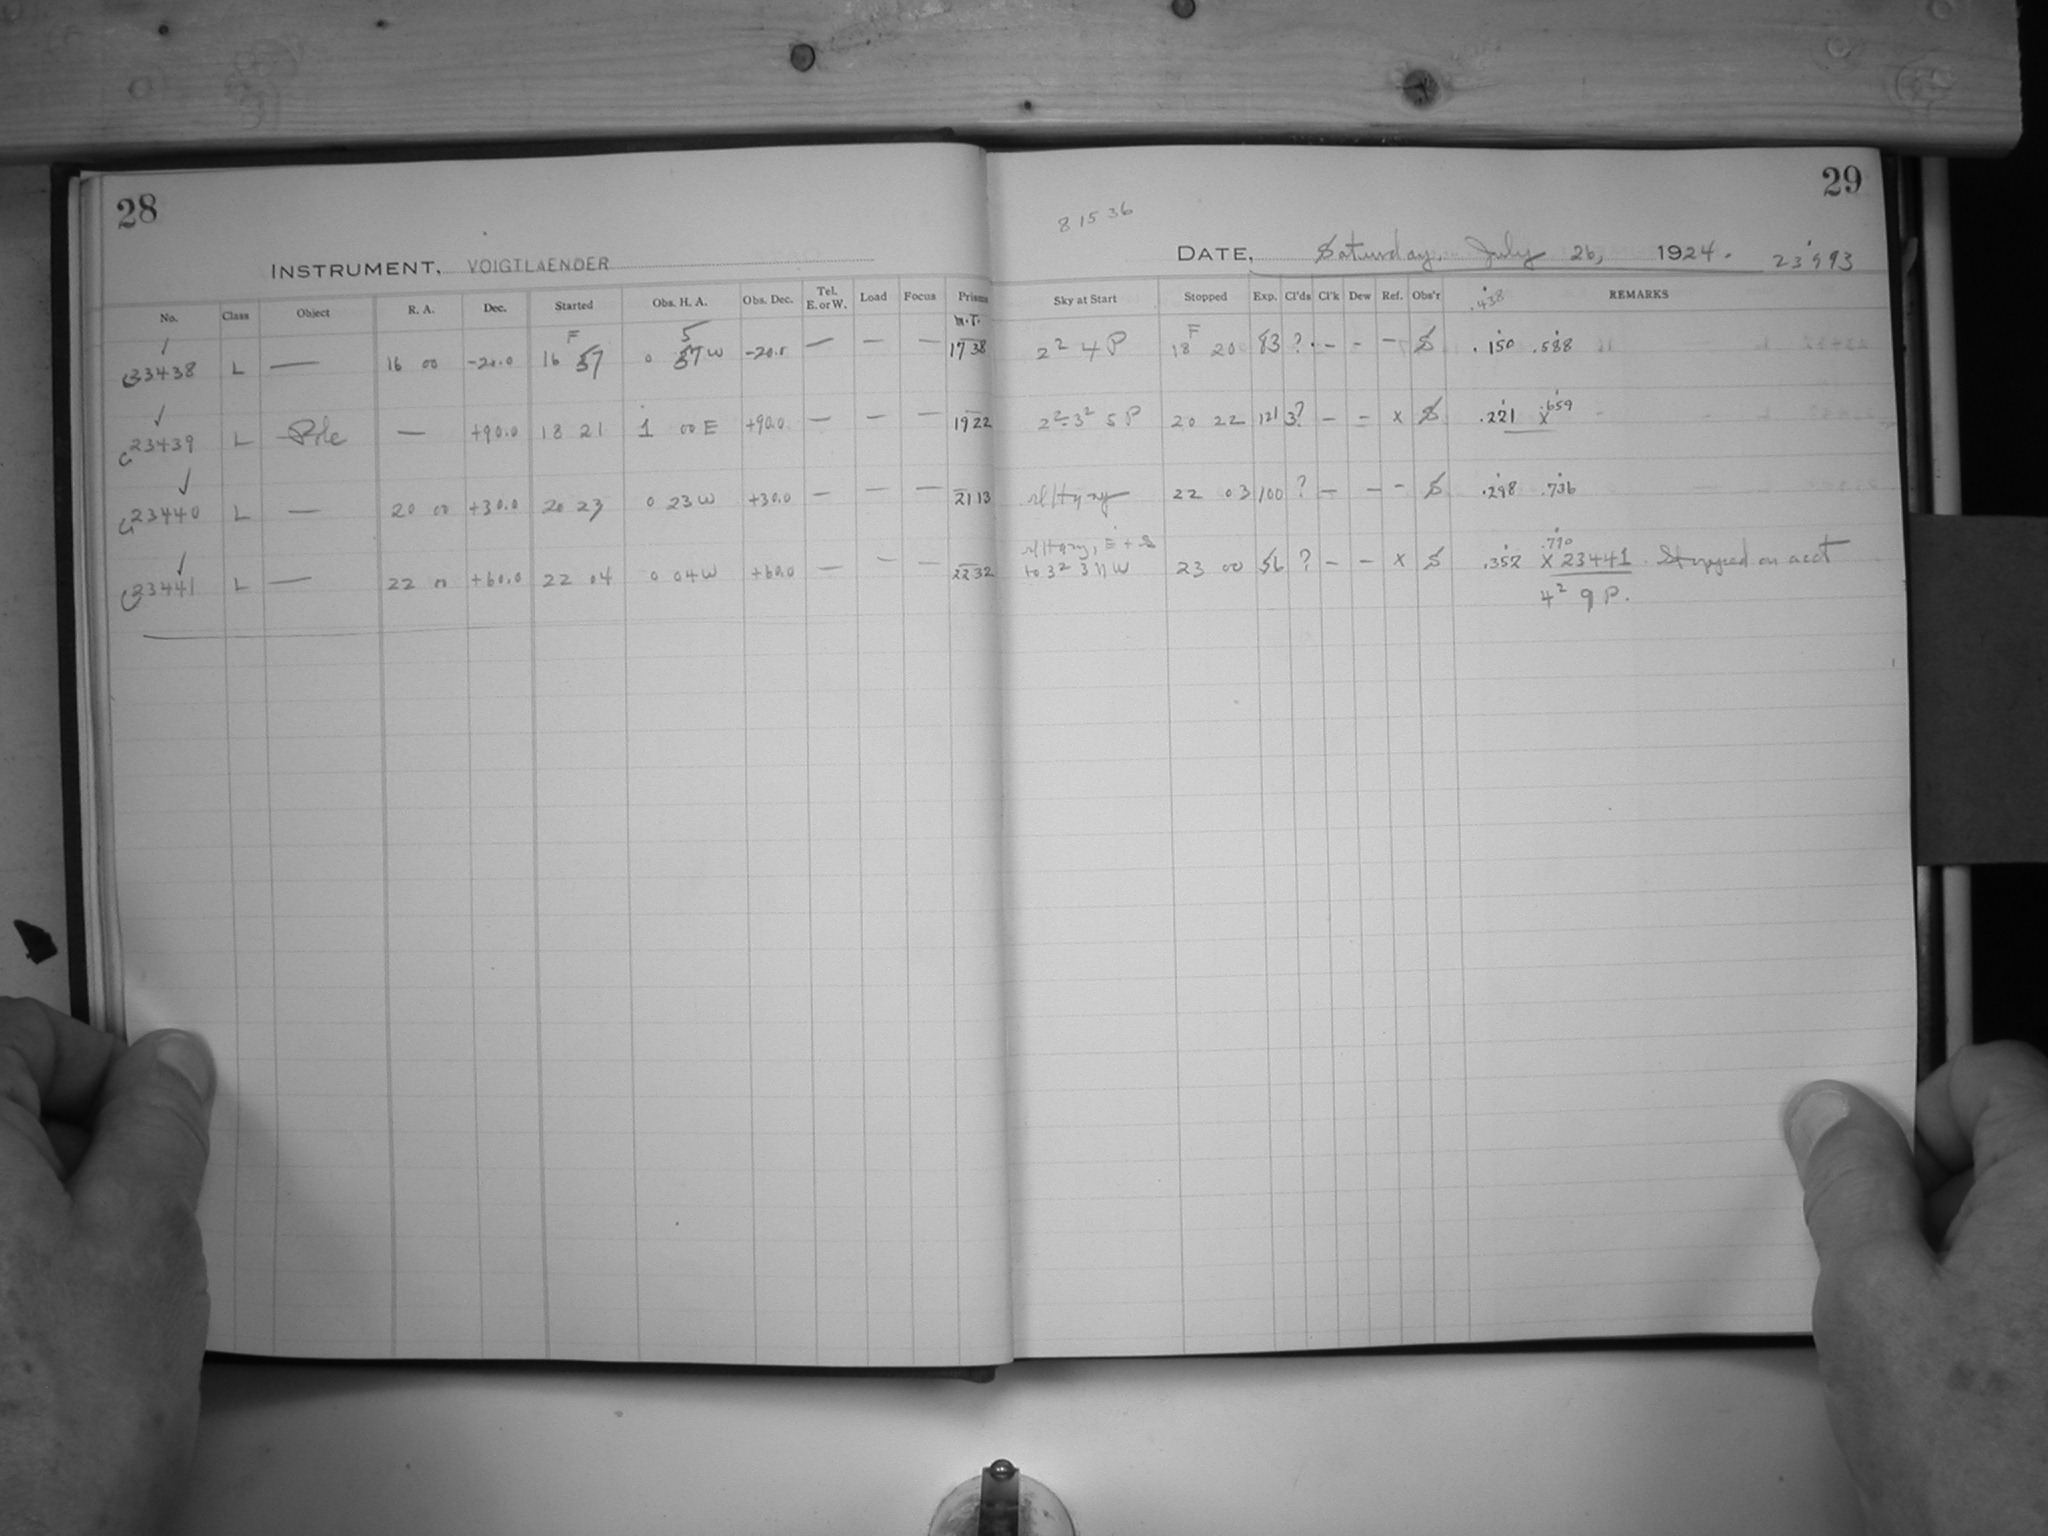 28
29
8 15 36
INSTRUMENT, VOIGTLAENDER
DATE, Saturday, July 26, 1924. 23993
No. Class Object R. A. Dec. Started Obs. H. A. Obs. Dec. Tel. E. or W. Load Focus Prisms Sky at Start Stopped Exp. Cl'ds Cl'k Dew Ref. Obs'r .438 REMARKS
M.T.
F 5 F
C23438 L — 16 00 -20.0 16 57 0 57 W -20.5 — — — 17 38 2² 4 P 18 20 83 ? - - - S .150 .588
C23439 L Pole — +90.0 18 21 1 00 E +90.0 — — — 19 22 2²-3² 5 P 20 22 121 3? - - x S .221 x .659
C23440 L — 20 00 +30.0 20 23 0 23 W +30.0 — — — 21 13 sl Hazy 22 03 100 ? - - - S .298 .736
sl Hazy, E + S .790
C23441 L — 22 00 +60.0 22 04 0 04 W +60.0 — — — 22 32 to 3² W 23 00 56 ? - - x S .352 x 23441. Stopped on acct
4² 9 P.